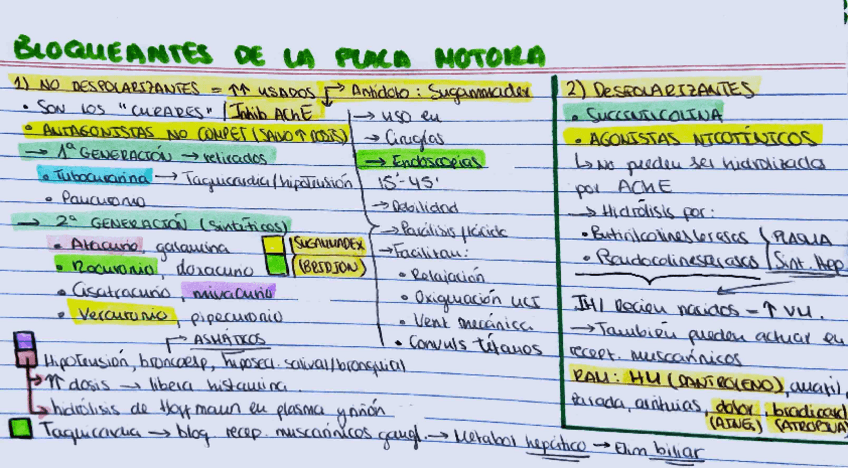 BLOQUEANTES DE LA PLACA MOTORA
1) NO DESPOLARIZANTES = ↑↑ USADOS → Antídoto: Sugammadex
• SON LOS "CURARES" Inhib AChE
• ANTAGONISTAS NO COMPET (SALVO ↑ DOSIS)
→ 1ª GENERACIÓN → retirados
• Tubocurarina → Taquicardia/hipotensión
• Pancuronio
→ 2ª GENERACIÓN (sintéticos)
• Atracurio, galamina
• Rocuronio, doxacurio
• Cisatracurio, mivacurio
• Vecuronio, pipecuronio
SUGAMMADEX
(BRIDION)
→ uso en
→ Cirugías
→ Endoscopias
15'-45'
→ Debilidad
→ Parálisis flácida
→ Facilitan:
• Relajación
• Oxigenación UCI
• Vent mecánica
• Convuls tétanos
→ ASMÁTICOS
Hipotensión, broncoesp, hipersecr. salival/bronquial
↑↑ dosis → libera histamina.
hidrólisis de Hoffmann en plasma y riñón
Taquicardia → bloq recep. muscarínicos gangl. → Metabol hepático → Elim biliar
2) DESPOLARIZANTES
• SUCCINILCOLINA
• AGONISTAS NICOTÍNICOS
↳ No pueden ser hidrolizados
por AChE
→ Hidrólisis por:
• Butirilcolinesterasas PLASMA
• Pseudocolinesterasas Sínt. Hep
IH/ Recién nacidos = ↑ VM.
→ También pueden actuar en
recept. muscarínicos
RAM: HM (DANTROLENO), anafil,
arritmias, dolor, bradicard
(AINES) (ATROPINA)